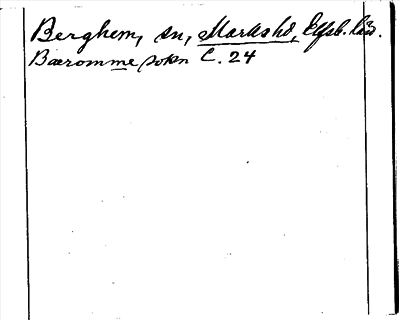 Berghem, sn, Marks hd, Elfsb. län.
Bæromme sokn C. 24